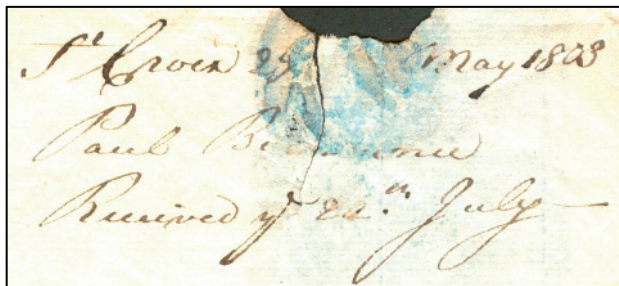 St Croix 29 May 1803
Paul
Received ye 22n July